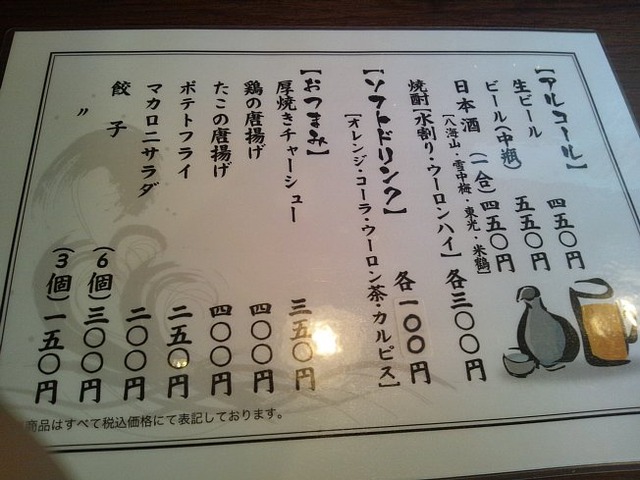 【アルコール】
生ビール 四五〇円
ビール(中瓶) 五五〇円
日本酒 (一合) 四五〇円
[八海山・雪中梅・東光・米鶴]
焼酎[水割り・ウーロンハイ] 各三〇〇円
【ソフトドリンク】 各一〇〇円
[オレンジ・コーラ・ウーロン茶・カルピス]
【おつまみ】
厚焼きチャーシュー 三五〇円
鶏の唐揚げ 四〇〇円
たこの唐揚げ 四〇〇円
ポテトフライ 二五〇円
マカロニサラダ 二〇〇円
餃子 (6個) 三〇〇円
〃 (3個) 一五〇円
商品はすべて税込価格にて表記しております。